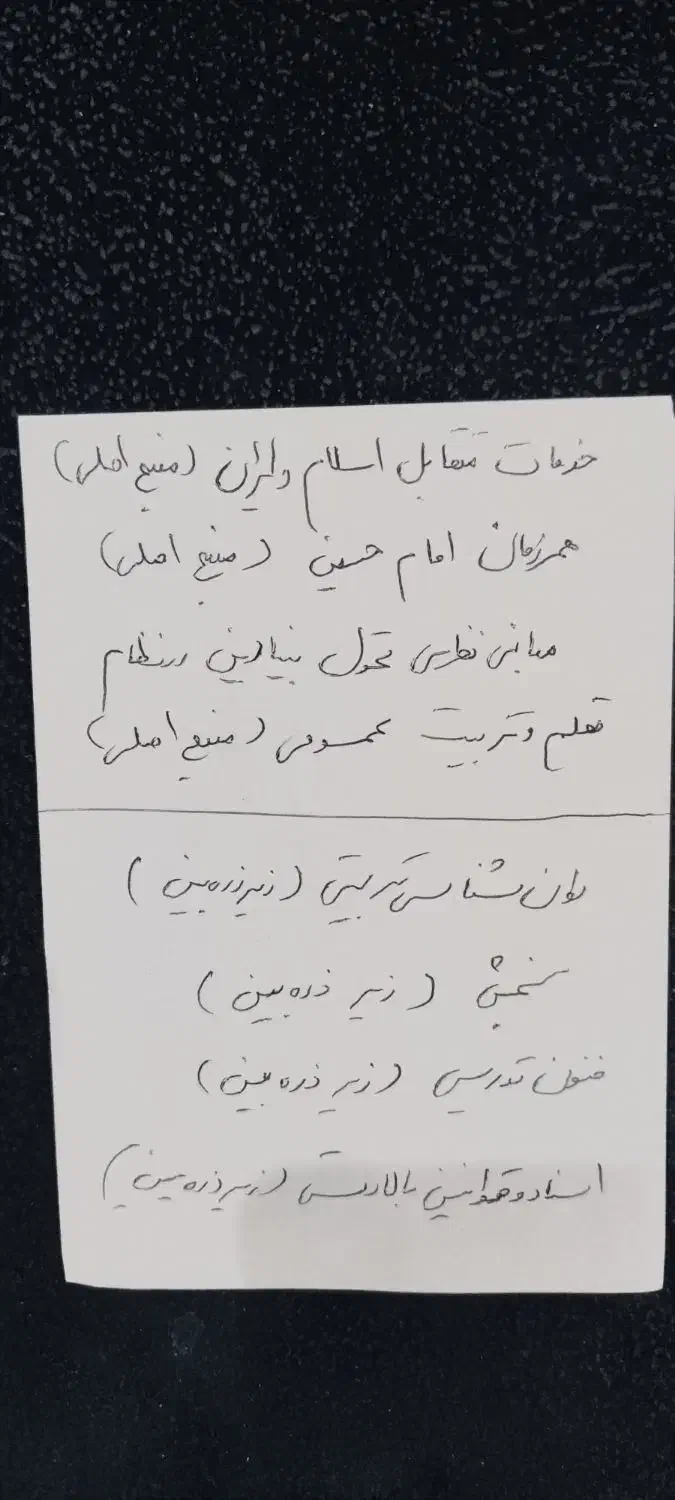 خدمات متقابل اسلام و ایران (منبع اصلی)
همرزمان امام حسین (منبع اصلی)
مبانی نظری تحول بنیادین در نظام
تعلیم و تربیت عمومی (منبع اصلی)
روان شناسی تربیتی (زیر ذره بین)
سنجش (زیر ذره بین)
فنون تدریس (زیر ذره بین)
اسناد و قوانین بالادستی (زیر ذره بین)